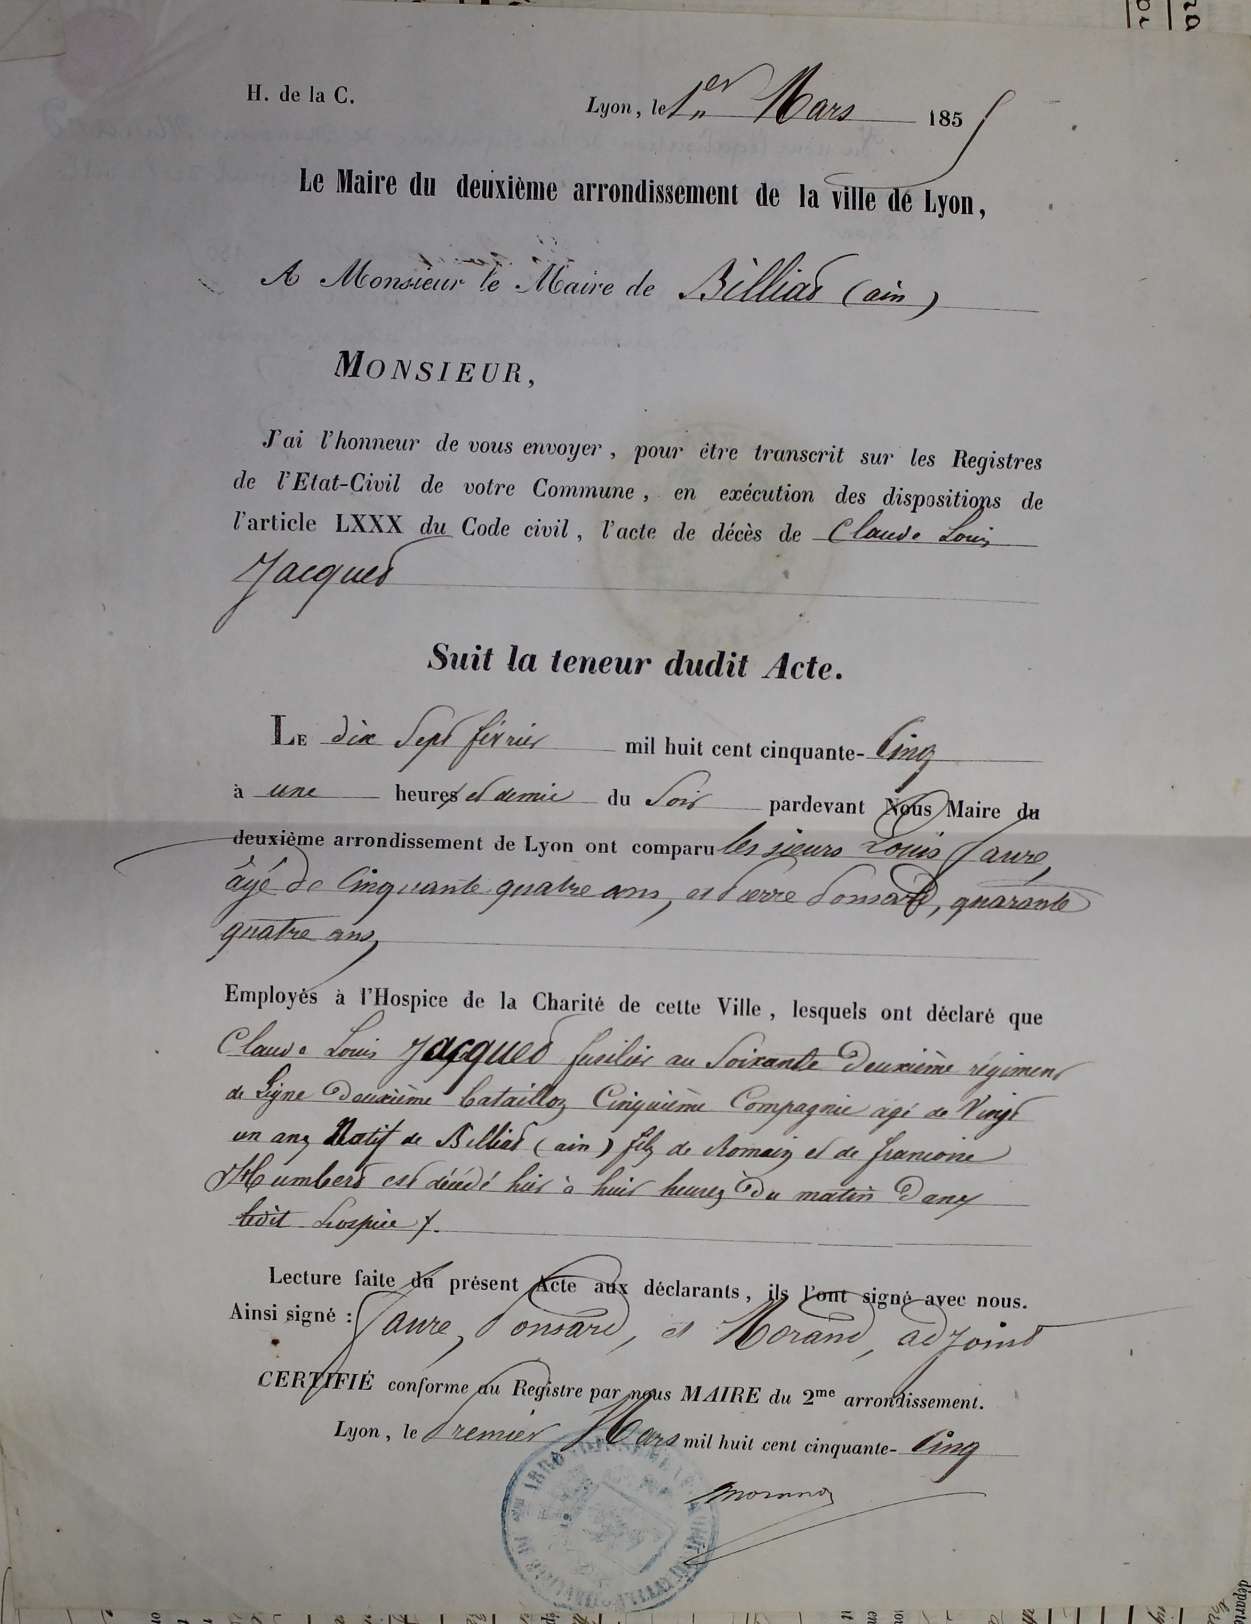 H. de la C.
Lyon, le 1er Mars 1855
Le Maire du deuxième arrondissement de la ville de Lyon,
A Monsieur le Maire de Billiat (ain)
MONSIEUR,
J'ai l'honneur de vous envoyer, pour être transcrit sur les Registres
de l'Etat-Civil de votre Commune, en exécution des dispositions de
l'article LXXX du Code civil, l'acte de décès de Claude Louis
Jacquet
Suit la teneur dudit Acte.
LE dix Sept février mil huit cent cinquante-Cinq
à une heures et demie du Soir pardevant Nous Maire du
deuxième arrondissement de Lyon ont comparu les sieurs Louis Faure,
âgé de Cinquante quatre ans, et Pierre Ponsard, quarante
quatre ans,
Employés à l'Hospice de la Charité de cette Ville, lesquels ont déclaré que
Claude Louis Jacquet fusilier au Soixante Deuxième régiment
de Ligne Deuxième bataillon Cinquième Compagnie agé de Vingt
un ans Natif de Billiat (ain) fils de Romain et de francoise
Humbert est décédé hier à huit heures Du matin Dans
ledit hospice
Lecture faite du présent Acte aux déclarants, ils l'ont signé avec nous.
Ainsi signé : Faure, Ponsard, et Morand, adjoint
CERTIFIÉ conforme au Registre par nous MAIRE du 2me arrondissement.
Lyon, le Premier Mars mil huit cent cinquante-Cinq
Morand